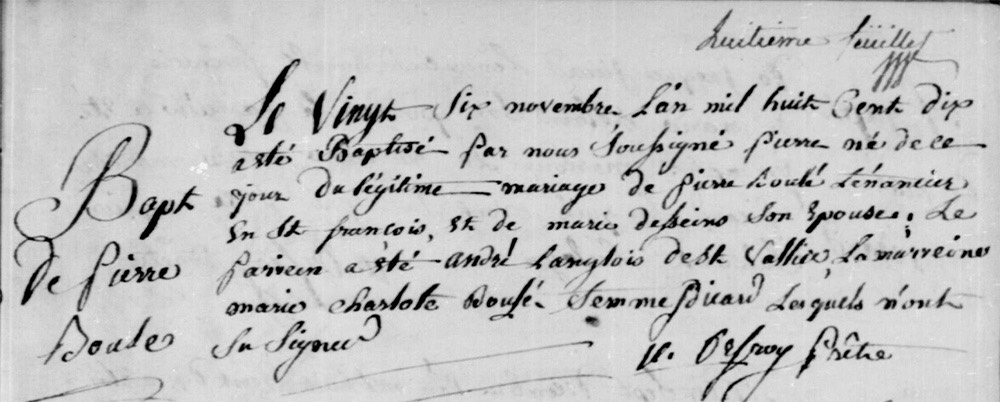 huitieme feüillet
Bapt
de pierre
Boule
Le vingt six novembre Lan mil huit Cent dix
a eté Baptisé par nous Soussigné pierre né de ce
jour du légitime mariage de pierre boulé tenancier
En St francois, et de marie desseins Son Epouse. Le
parrein a eté andré Langlois de St Vallier, La marreine
marie charlote Boulé femme Picard Lesquels n'ont
Su Signer
Prêtre